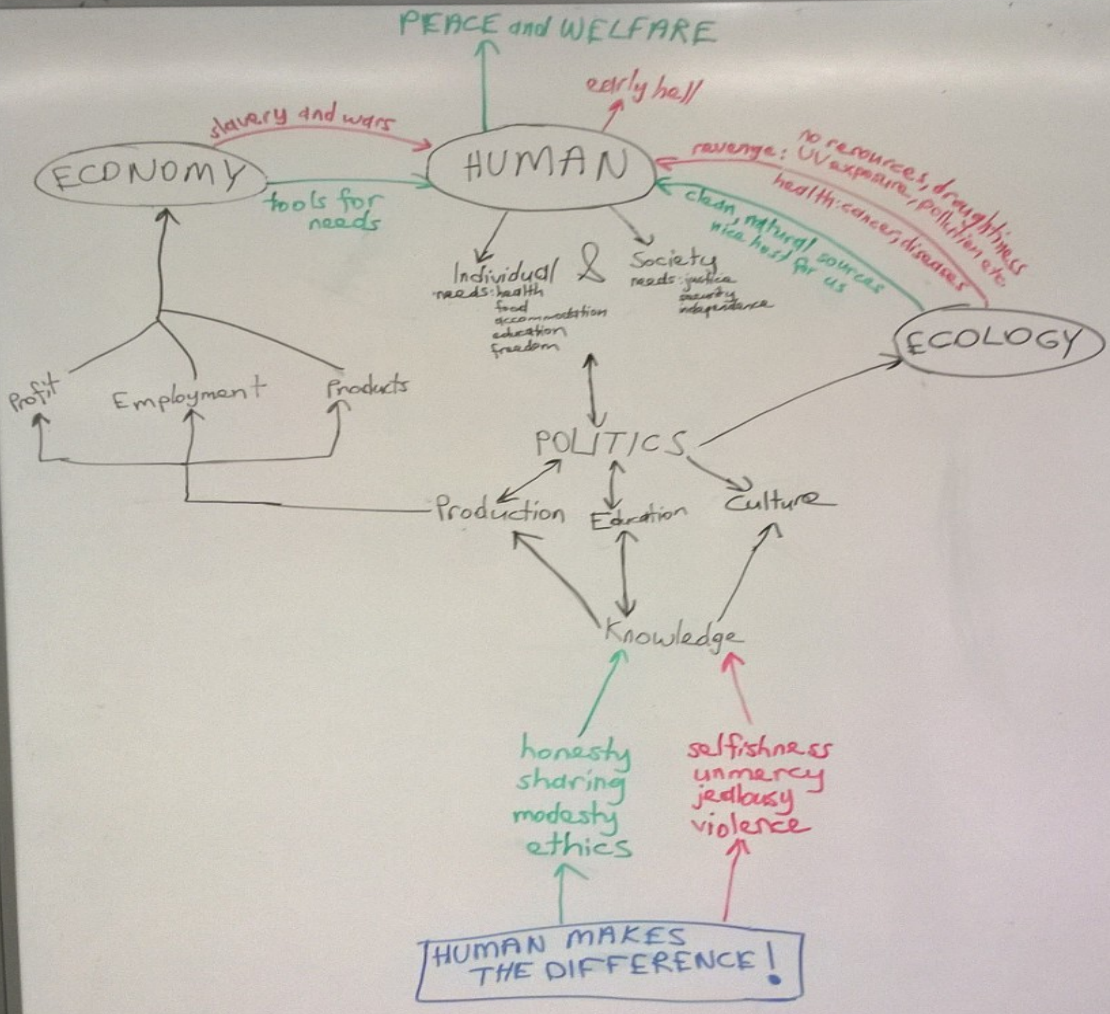 PEACE and WELFARE
early hell
slavery and wars
ECONOMY
HUMAN
tools for
needs
no resources, draughtiness
revenge: UV exposure, pollution etc
health: cancer, diseases
clean, natural sources
nice host for us
ECOLOGY
Individual
needs: health
food
accommodation
education
freedom
&
Society
needs: justice
security
independence
Profit
Employment
Products
POLITICS
Production
Education
Culture
Knowledge
honesty
sharing
modesty
ethics
selfishness
unmercy
jealousy
violence
HUMAN MAKES
THE DIFFERENCE!